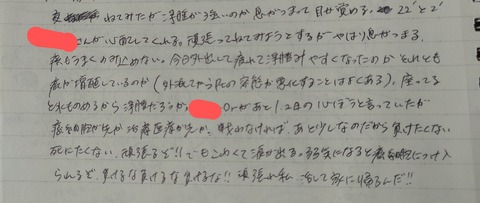 ねてみたが浮腫が強いのか息がつまって目が覚める。22'と2'
さんが心配してくれる。頑張ってねてみようとするがやはり息がつまる。
痰もうまくのみ込めない。今日外出して疲れて浮腫みやすくなったのかそれとも
癌が増殖しているのか(外泊してからPtの容態が悪化することはよくある)。座ってる
と水ものめるから浮腫だろうか。Drがあと1.2日の心ぼうと言っていたが
癌細胞が先か治療医療が先か。戦わなければ、あと少しなのだから負けたくない
死にたくない。頑張るぞ!!でもこわくて涙が出る。弱気になると癌細胞につけ入
られるぞ、負けるな負けるな負けるな!!頑張れ私 治して家に帰るんだ!!